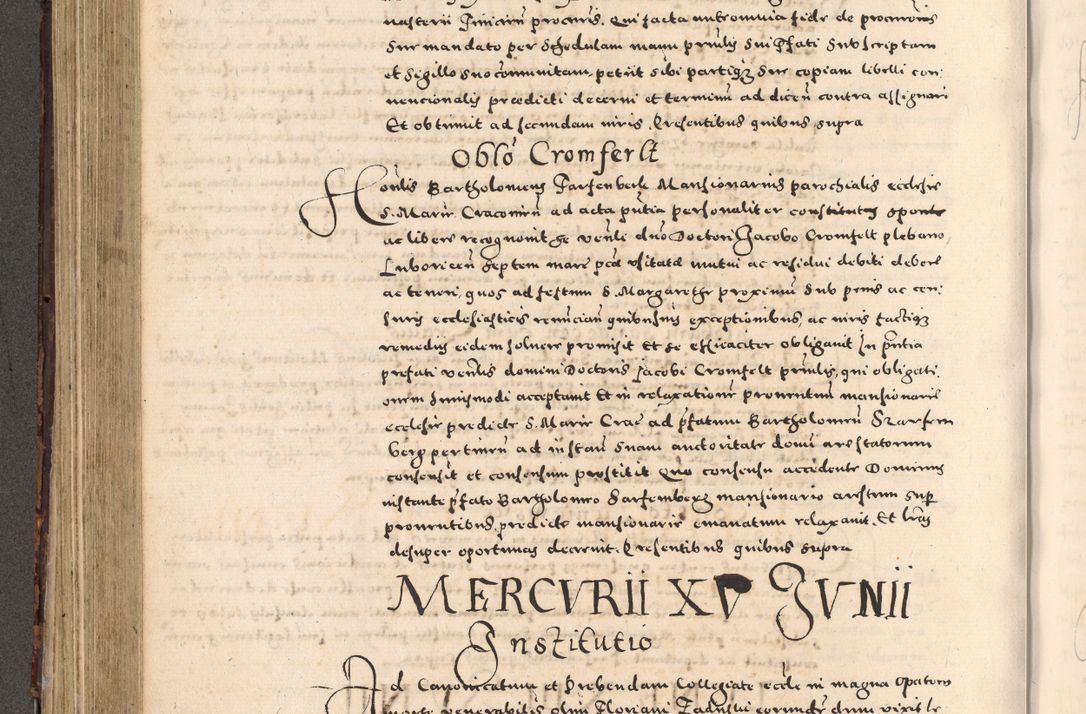 nasterii Zinicinu procuris. Qui facta in omnia fide de procuronis
Sue mandato per Schedulam manu prnlis Sui Pfati Subscriptam
et Sigillo suo communitam petiit sibi partiqz Sue copiam libelli con:
nencionalis praedicti decerni et terminu ad dicen contra assignari
Et obtinuit ad secundam iuris. Presentibus quibus supra
Oblo Cromfert
Honlis Bartholomeus Farfenberk Mansionarius parochialis ecclesie
S. Marie Cracouien ad acta pntia personaliter constitutus sponte
ac libere recognouit se venli dno Doctori Jacobo Cromfelt plebano
Luboricen septem marc pcd usitatae mutui ac residui debiti debere
ac teneri, quas ad festum S. Margarethe proximu sub penis ac cen:
suris ecclesiasticis renuncian quibusuis exceptionibus, ac iuris factiqz
remediis eidem soluere promisit et se efficaciter obligauit In pntia
prefati venlis domini Doctoris Jacobi Cromfelt prnlis, qui obligati:
onem huiusmodi acceptauit Et in relaxatione prouentuu mansionarie
ecclesie predicte S. Marie Crac ad pfatum Bartholomeu Szarfem
berg pertinen ad instan suam auctoritate domi arestatorum
consensit et consensum prestitit Quo consensu accedente Dominus
instante pfato Bartholomeo Sarfemberg mansionario arestum sup
prouentibus predicte mansionarie emanatum relaxauit. Et lras
desuper oportunas decreuit. Presentibus quibus supra
MERCVRII XV JVNII
Institutio
Ad Canonicatum et Prebendam Collegiate eccle in magna Opatow
morte venerabilis olim Floriani